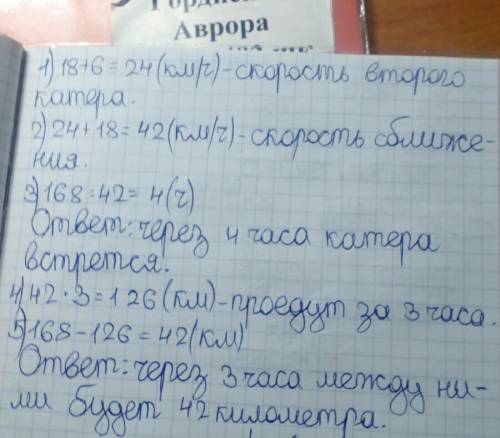 Аврора
1) 18+6=24(км/ч)-скорость второго
катера.
2) 24+18=42(км/ч)-скорость сближе-
ния.
3) 168:42=4(ч)
Ответ: через 4 часа катера
встрется.
4) 42·3=126(км)-проедут за 3 часа.
5) 168-126=42(км)
Ответ: через 3 часа между ни-
ми будет 42 километра.